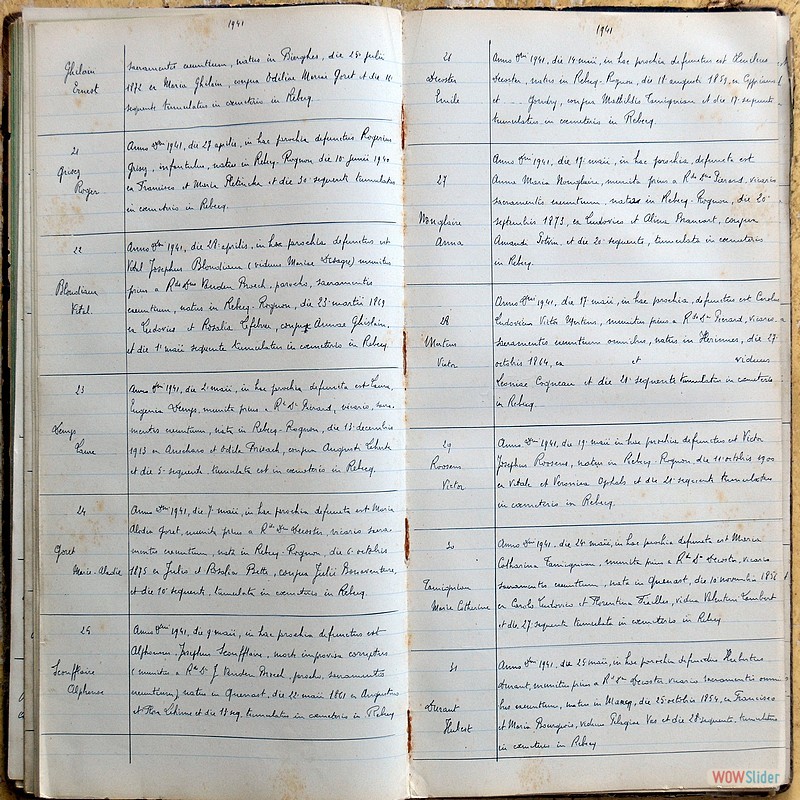 1941
Ghilain
Ernest
sacramentis exeuntium, natus in Bierghes, die 28 julii
1872 ex Maria Ghilain, conjux Odiliae Mariae Goret et die
sequente tumulatus in cemeterio in Rebecq.
21
Roger
Anno Dni 1941, die 27 aprilis, in hac parochia defunctus Rogerius
infantulus, natus in Rebecq-Rognon die 10 junii 1940
ex Francisco et Maria et die 30 sequente tumulatus
in cemeterio in Rebecq.
22
Blondiaux
Vital
Anno Dni 1941, die 28 aprilis, in hac parochia defunctus est
Vital Josephus Blondiaux (viduus Mariae) munitus
prius a Rdo Dno Vanden Broeck, parocho, sacramentis
exeuntium, natus in Rebecq-Rognon, die 23 martii 1869
ex Ludovico et Rosalia Lefebvre, conjux Annae Ghislain,
et die 1a maii sequente tumulatus in cemeterio in Rebecq.
23
Laure
Anno Dni 1941, die 2 maii, in hac parochia defuncta est Laura
Eugenia munita prius a Rdo Do Pierard, vicario, sacra-
mentis exeuntium, nata in Rebecq-Rognon, die 13 decembris
1913 ex et Odila conjux Augusti
et die 5 sequente tumulata est in cemeterio in Rebecq.
24
Goret
Marie-Aladie
Anno Dni 1941, die 7 maii, in hac parochia defuncta est Maria
Aladia Goret, munita prius a Rdo Dno Decoster, vicario sacra-
mentis exeuntium, nata in Rebecq-Rognon, die 6 octobris
1875 ex Julio et Rosalia Bette, conjux Julii Bonaventure,
et die 10 sequenti, tumulata in cemeterio in Rebecq.
25
Scoufflaire
Alphonse
Anno Dni 1941, die 9 maii, in hac parochia defunctus est
Alphonsus Josephus Scoufflaire, morte improvisa correptus
(munitus a Rdo D. J. Vanden Broeck, parocho, sacramentis
exeuntium) natus in Quenast, die 22 maii 1861 ex Augustino
et Flora et die seq. tumulatus in cemeterio in Rebecq
1941
26
Decoster
Emile
Anno Dni 1941, die 14 maii, in hac parochia defunctus est
Decoster, natus in Rebecq-Rognon, die 18 augusti 1859, ex Cypriano
et conjux Mathildis Tamignian et die 17 sequente
tumulatus in cemeterio in Rebecq.
27
Monglaire
Anna
Anno Dni 1941, die 17 maii, in hac parochia, defuncta est
Anna Maria Monglaire, munita prius a Rdo Dno Pierard, vicario
sacramentis exeuntium, nata in Rebecq-Rognon, die 20
septembris 1873, ex Ludovico et Alina Brancart, conjux
Amandi Potvin, et die 20 sequente, tumulata in cemeterio
in Rebecq.
28
Mertens
Victor
Anno Dni 1941, die 17 maii, in hac parochia, defunctus est Carolus
Ludovicus Victor Mertens, munitus prius a Rdo Do Pierard, vicario
sacramentis exeuntium omnibus, natus in Herinnes, die 27
octobris 1864, ex et viduus
Leoniae Cogneau et die 21 sequente tumulatus in cemeterio
in Rebecq.
29
Roosens
Victor
Anno Dni 1941, die 19 maii in hac parochia defunctus est Victor
Josephus Roosens, natus in Rebecq-Rognon die 11 octobris 1900
ex Vitale et Veronica Ophals et die 21 sequente tumulatus
in cemeterio in Rebecq.
30
Tamignian
Marie Catherine
Anno Dni 1941, die 24 maii, in hac parochia, defuncta est Maria
Catharina Tamignian, munita prius a Rdo Do Decoster, vicario
sacramentis exeuntium, nata in Quenast, die 10 novembris
ex Carolo Ludovico et Florentina vidua Valentini Lambert
et die 27 sequente tumulata in cemeterio in Rebecq.
31
Durant
Hubert
Anno Dni 1941, die 25 maii, in hac parochia defunctus Hubertus
Durant, munitus prius a Rdo Do Decoster vicario sacramentis omni-
bus exeuntium, natus in Marcq, die 25 octobris 1854, ex Francisco
et Maria Bourgeois, viduus Pelagiae et die 28 sequente, tumulatus
in cemeterio in Rebecq
WOWSlider